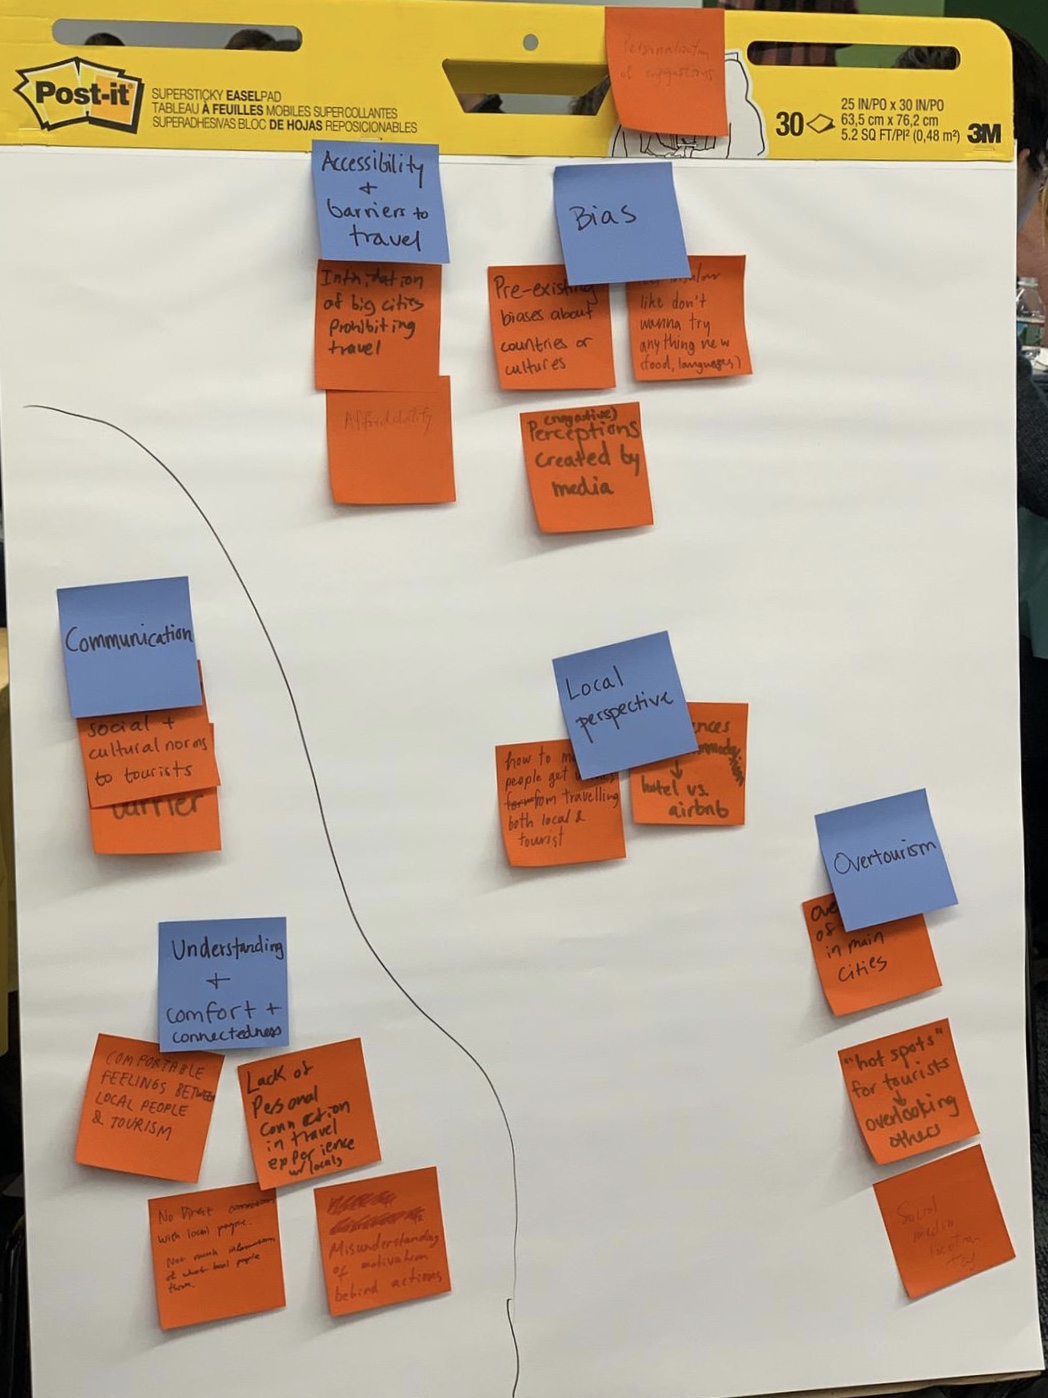 Post-it
SUPERSTICKY EASELPAD
TABLEAU À FEUILLES MOBILES SUPERCOLLANTES
SUPERADHESIVAS BLOC DE HOJAS REPOSICIONABLES
30
25 IN/PO x 30 IN/PO
63,5 cm x 76,2 cm
5.2 SQ FT/PI² (0,48 m²)
3M
of suggestions
Accessibility
+
barriers to
travel
of big cities
Prohibiting
travel
Affordability
Bias
Pre-existing
biases about
countries or
cultures
like don't
wanna try
anything new
(food, languages)
(negative)
Perceptions
created by
media
Communication
social +
cultural norms
to tourists
barrier
Local
perspective
how to
people get
from travelling
both local &
tourist
hotel vs.
airbnb
Overtourism
of
in main
cities
"hot spots"
for tourists
overlooking
others
Social
media
location
tag
Understanding
+
comfort +
connectedness
COMFORTABLE
FEELINGS BETWEEN
LOCAL PEOPLE
& TOURISM
Lack of
Personal
Connection
in travel
experience
w/ locals
No Direct connection
with local people.
Not much information
of what local people
Misunderstanding
of motivation
behind actions